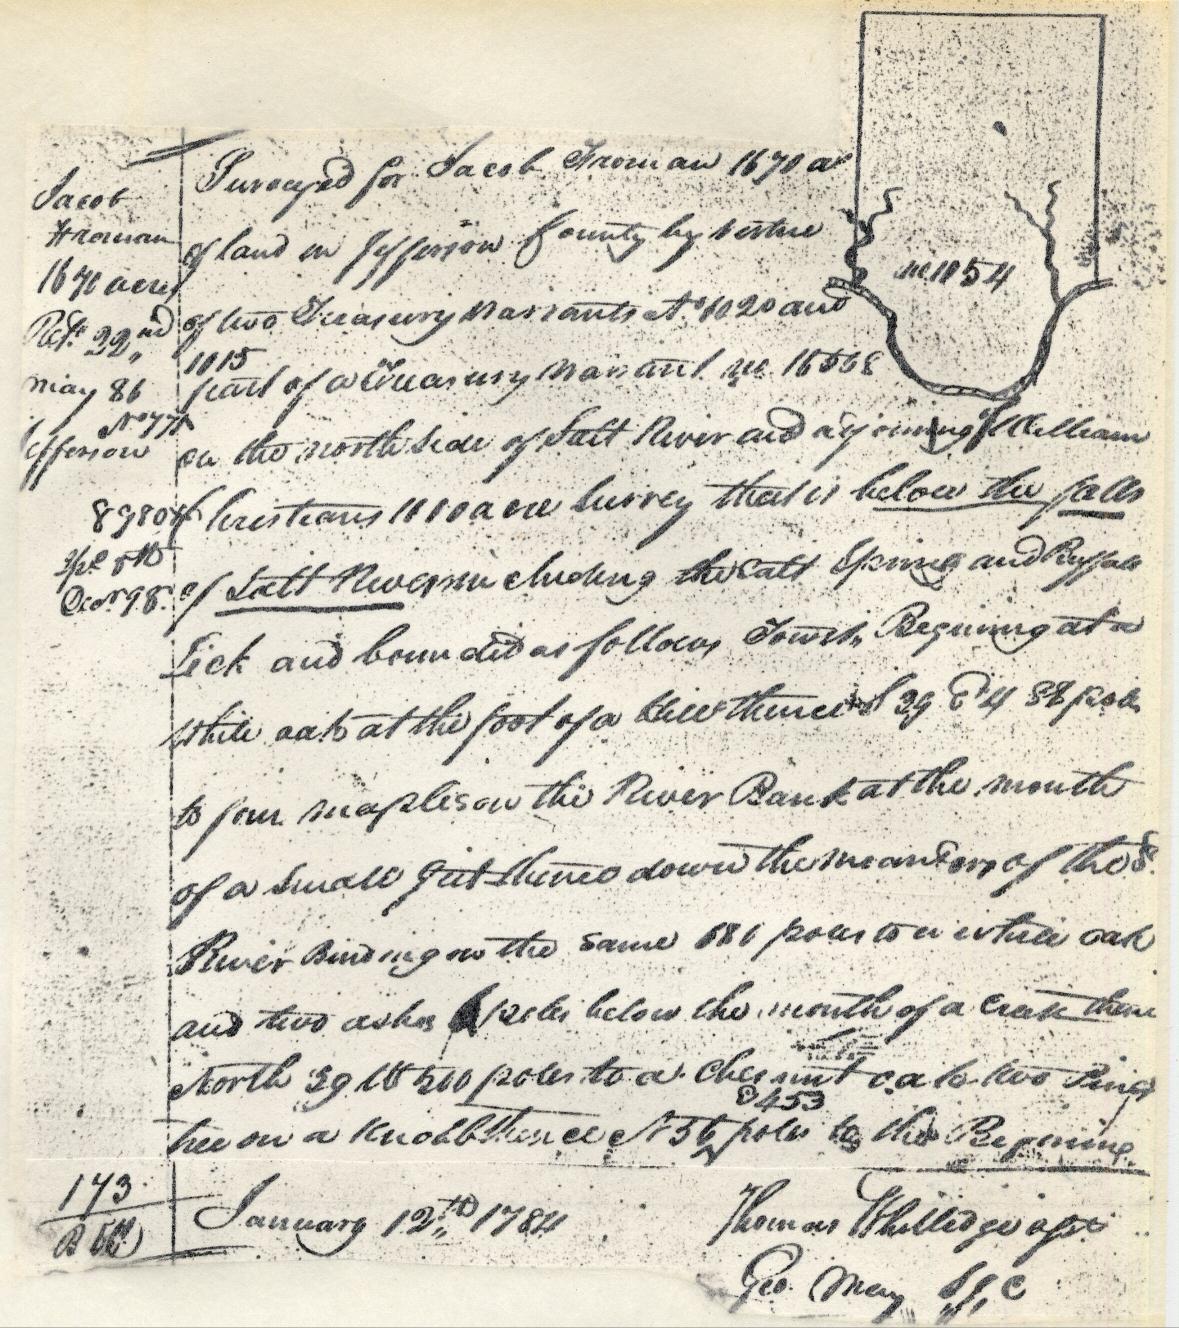 Jacob
Froman
1670 acres
Rct. 22nd
May 86
No 77
Jefferson
8980
Dec 98
Surveyed for Jacob Froman 1670 a
of land in Jefferson County by vertue
of two Treasury Warrants No 1020 and
1015
part of a Treasury Warrant no. 16568
on the north side of Salt River and ajoining William
Christians 1000 acre Survey that is below the falls
of Salt River including the Salt Spring and Buffalo
Lick and bounded as follows Towit, Begining at a
white oak at the foot of a Hill thence S 39 E 4 poles
to four maples on the River Bank at the mouth
of a Small Gut thence down the meanders of the S.
River Binding on the same 680 poles to a white oak
and two ashes poles below the mouth of a Creek thence
North 39 W 500 poles to a Chesnut oak two Pine
E 453
tree on a Knobb thence N 56 poles to the Begining
January 12th 1784
Thomas Whilledge asst
Geo May S J C
173
B